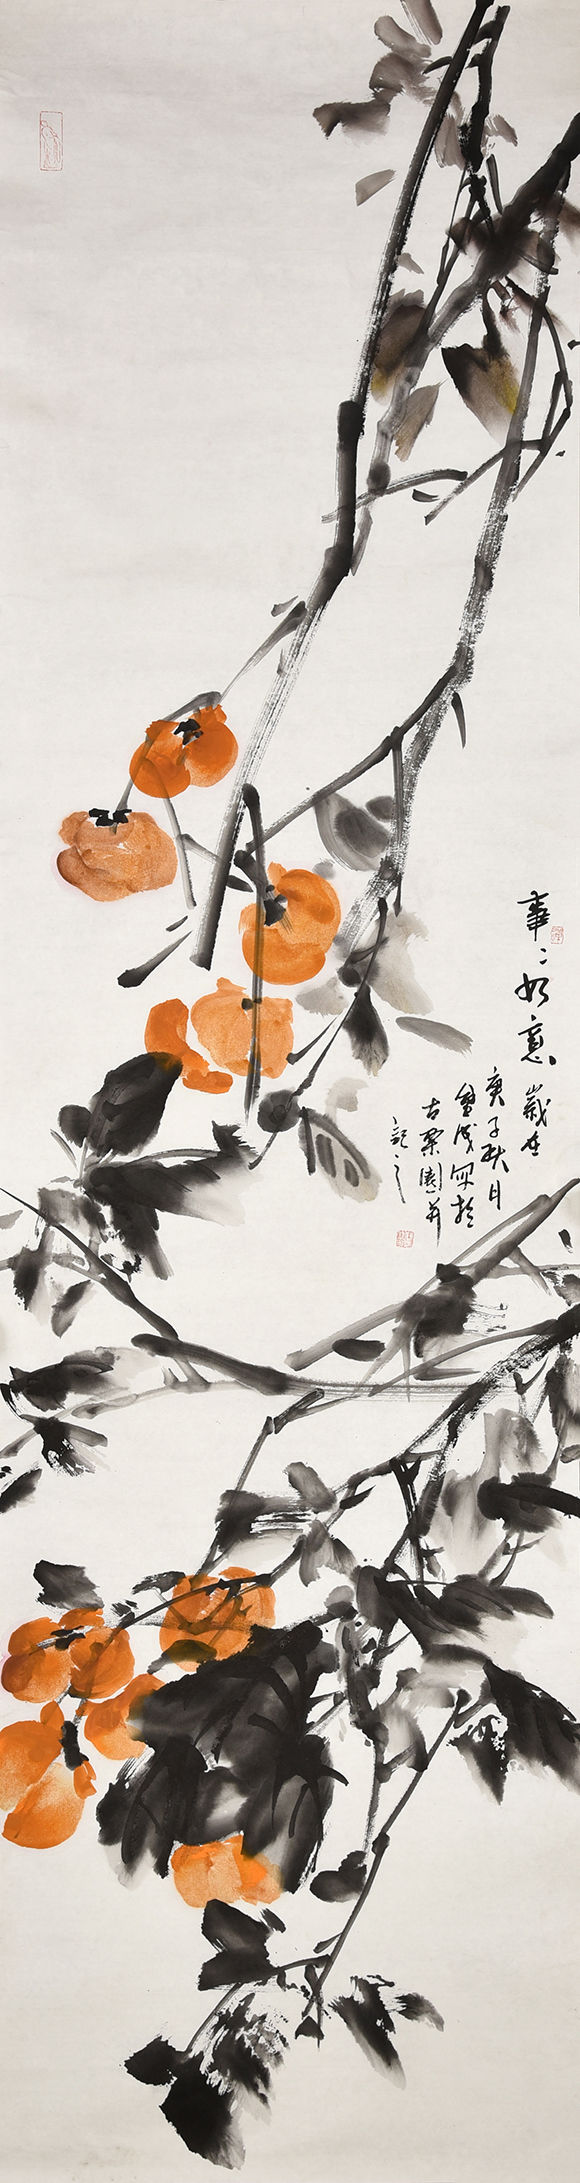 事〻如意 歲在
庚子秋月
寫於
古栗園并
記之